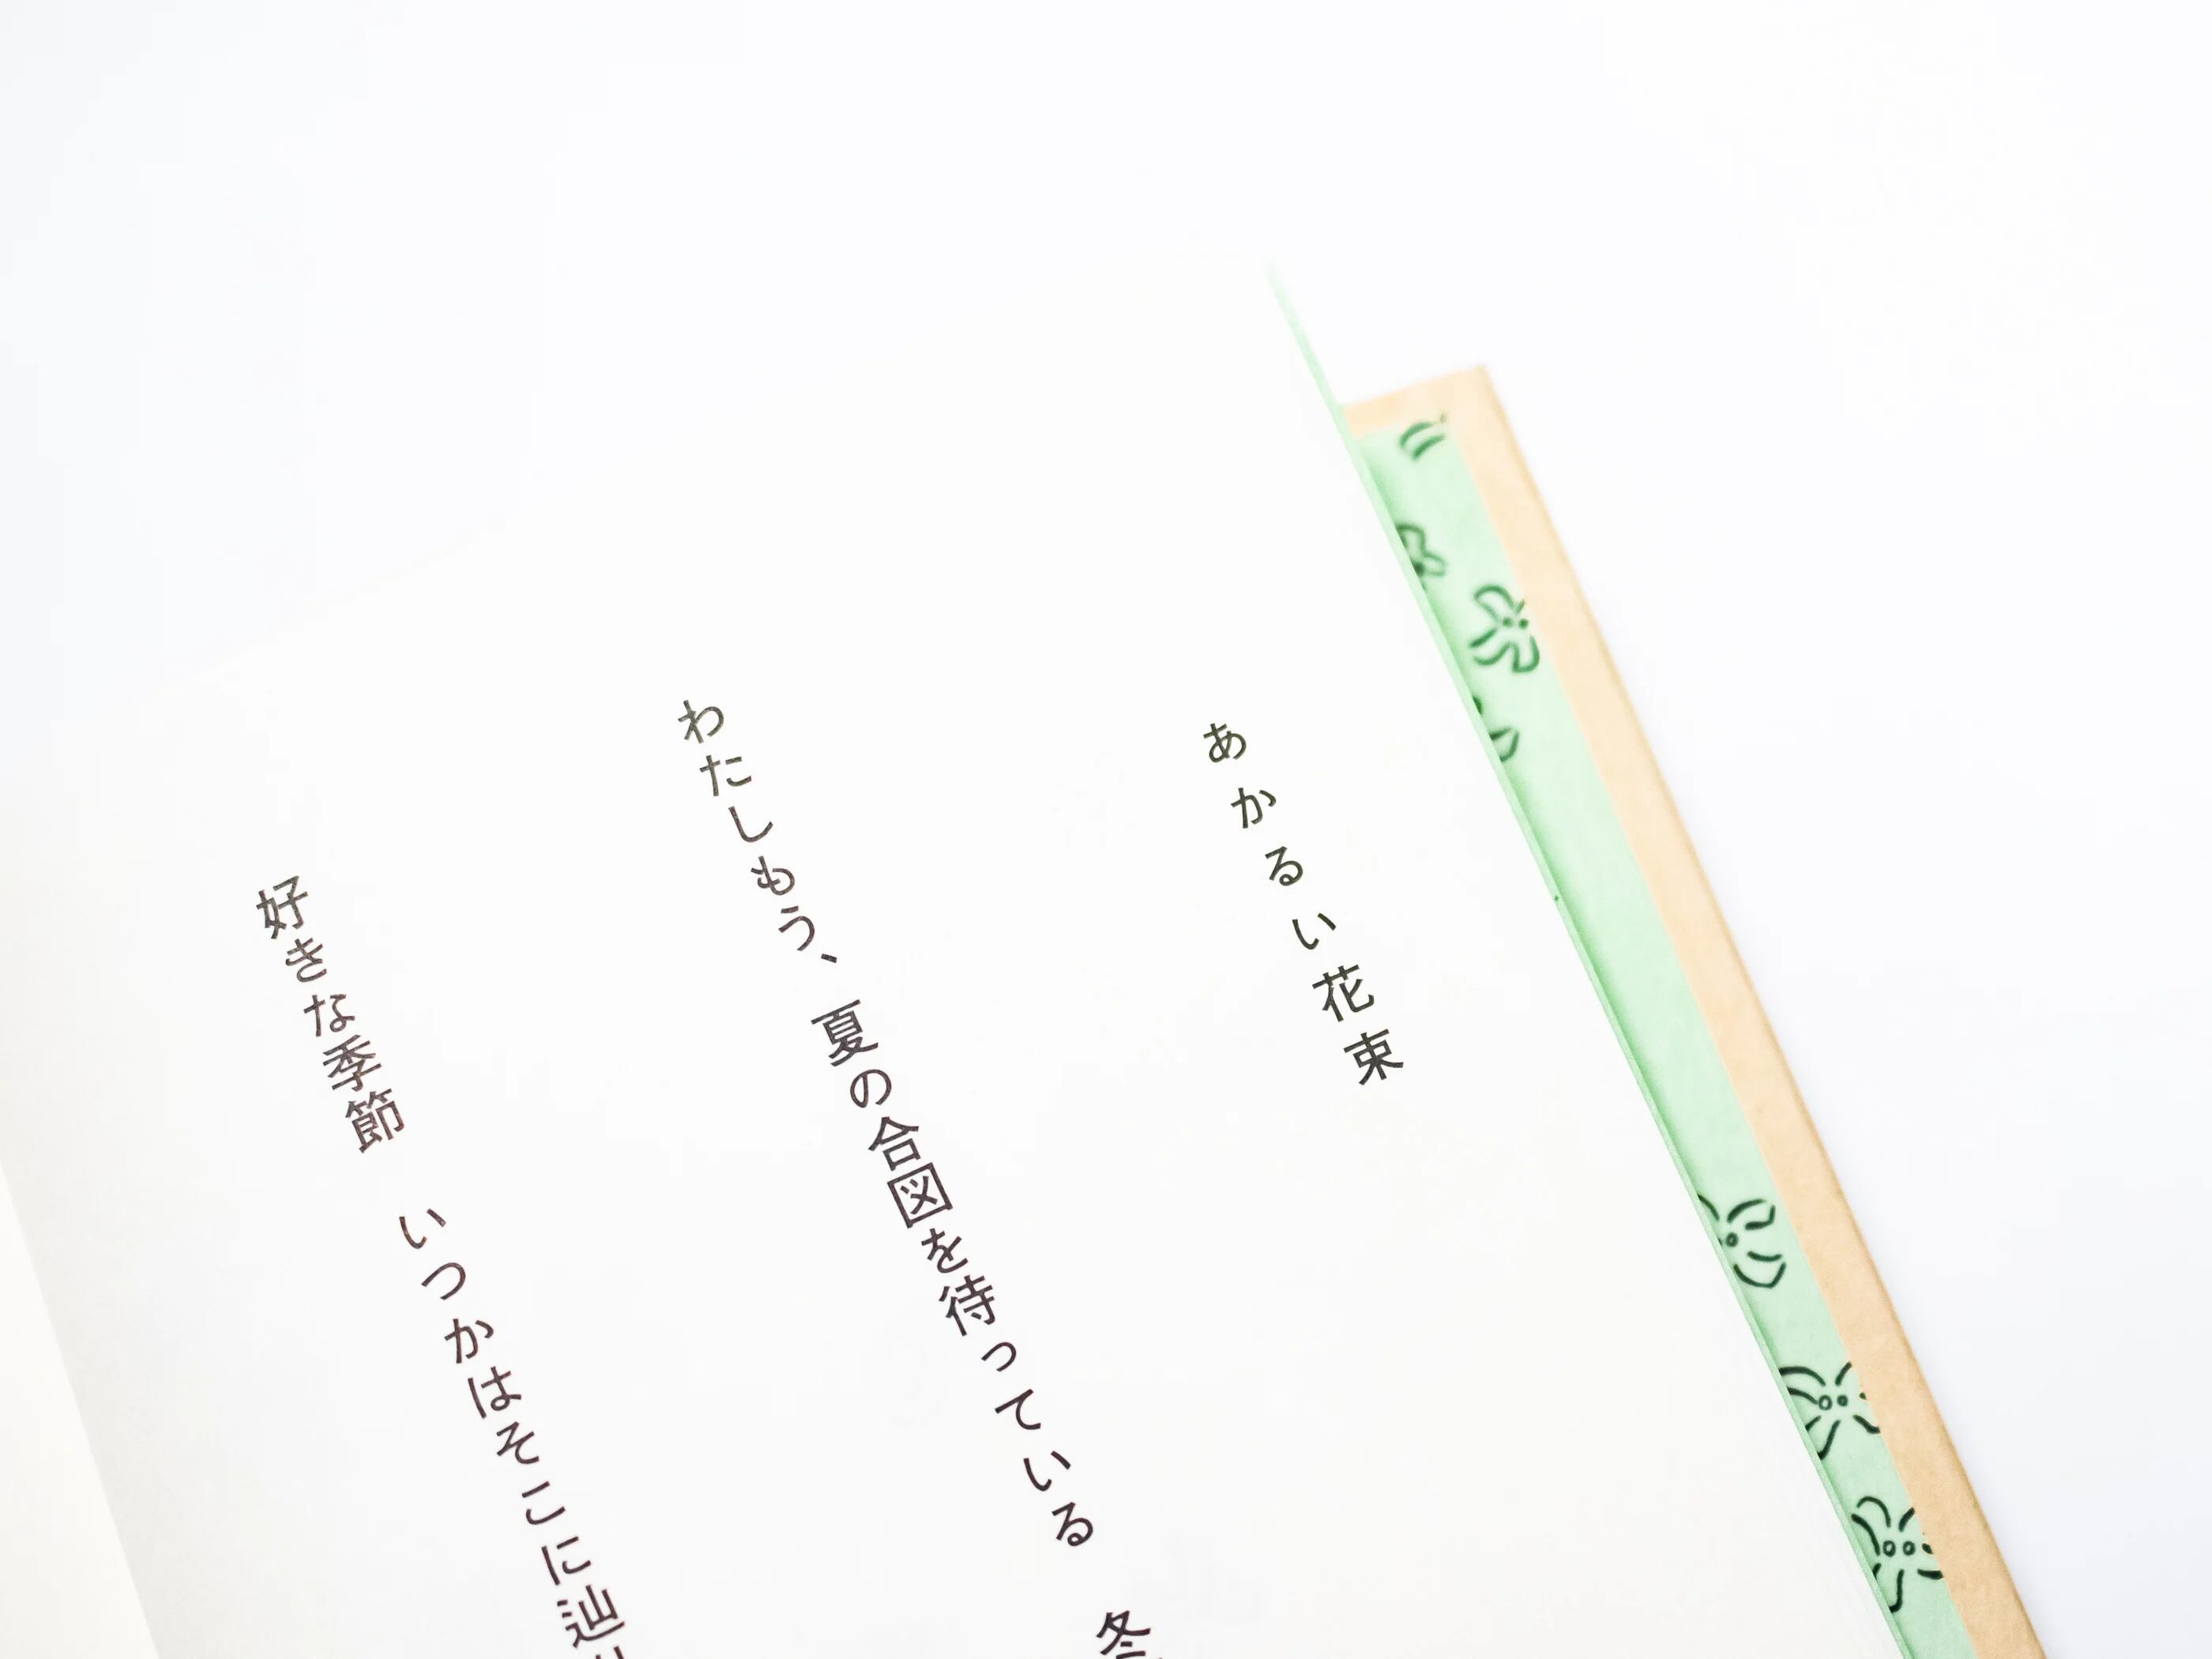 あかるい花束
わたしもう、夏の合図を待っている　冬
好きな季節　いつかはそこに辿